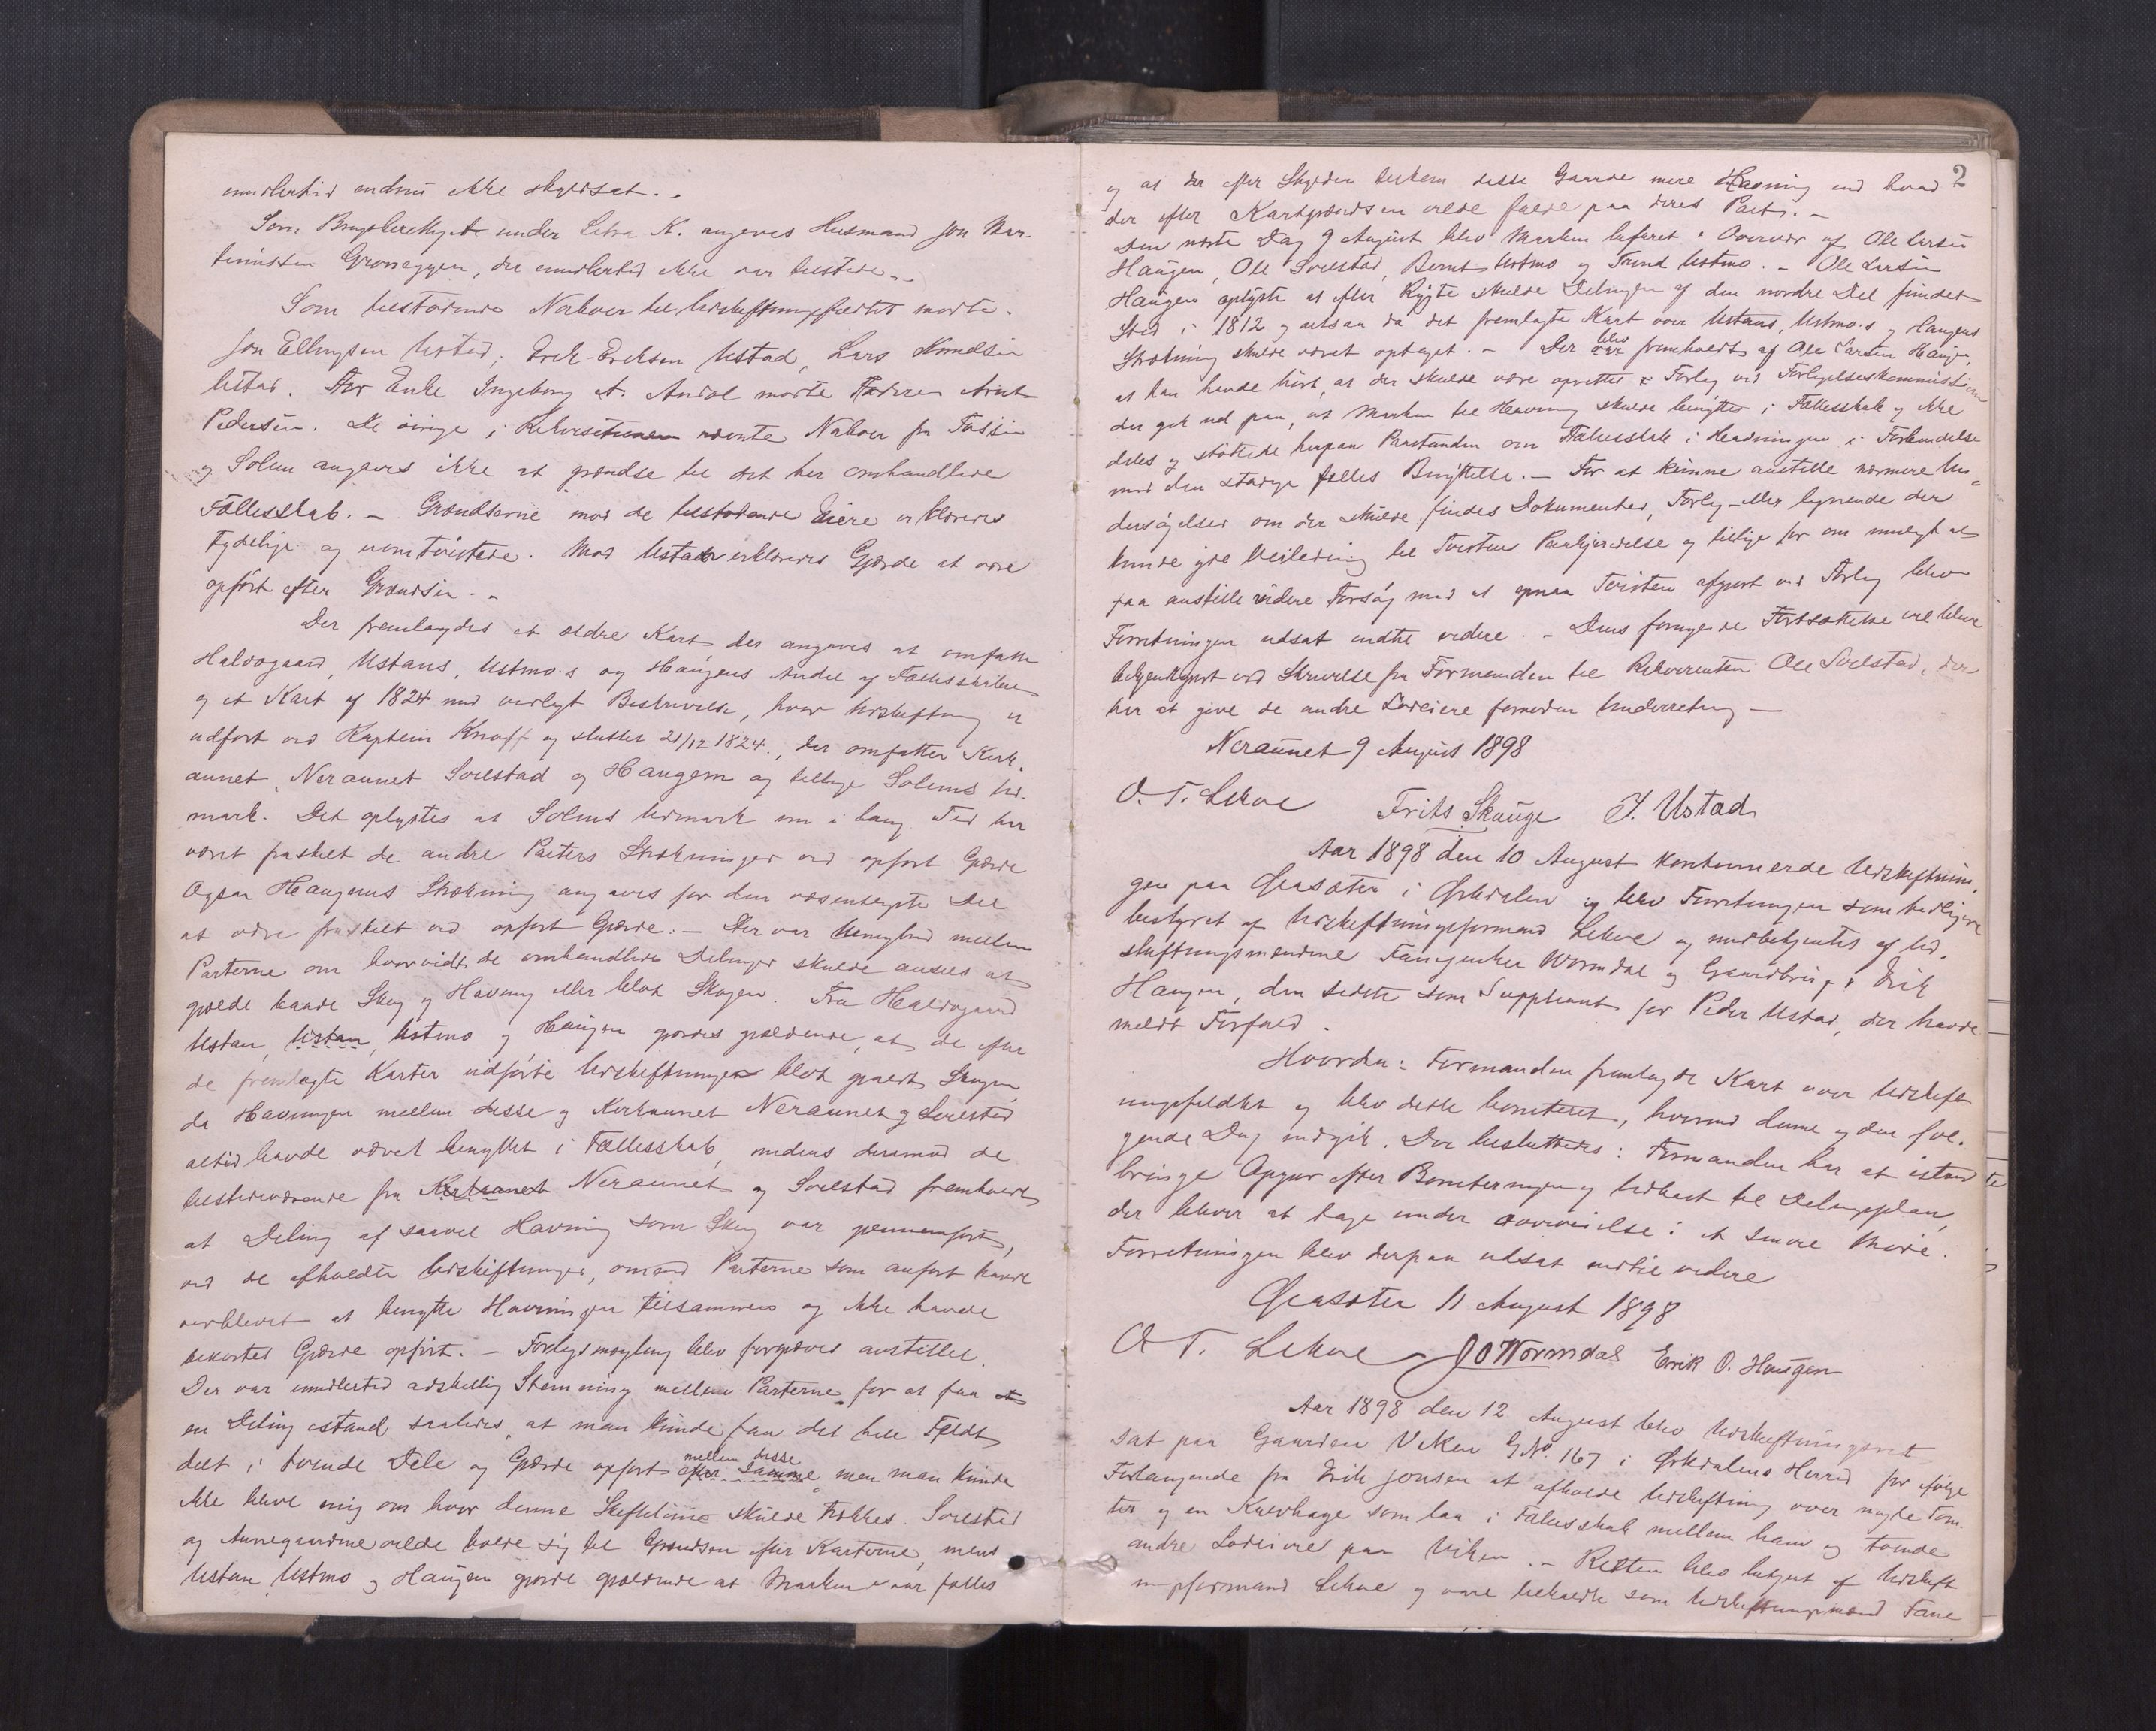 emidlertid endnu ikke skyldsat. -
Som Brugsberettiget under Litra K. angaves Husmand Jon Mar-
tinussen Grønneggen, der emidlertid ikke var tilstede. -
Som tilstødende Naboer til Udskiftningsfeldtet mødte.
Jon Ellingsen Ustad, Erik Eriksen Ustad, Lars Knudsen
Ustad. For Enke Ingeborg A. Asdøl mødte Faderen Arnt
Pedersen. De øvrige i Rekvisitionen nævnte Naboer fra Fossen
og Solem angaves ikke at grændse til det her omhandlede
Fællesskab. - Grændserne mod de tilstødende Eiere erklæredes
tydelige og uomtvistede. Mod Ustad erklæredes Gjærde at være
opført efter Grændsen. -
Der fremlagdes et ældre Kart der angaves at omfatte
Haldogaard, Ustans, Ustmo's og Haugens Andel af Fællesskabet
og et Kart af 1824 med vedlagt Beskrivelse, hvor Udskiftning er
udført ved Kaptein Knoff og sluttet 21/12 1824., der omfatter Kirk-
aunet, Neraunet Solstad og Haugen og tillige Solems Ud-
mark. Det oplystes at Solems Udmark nu i lang Tid har
været fraskilt de andre Parters Strækninger ved opført Gjærde
Ogsaa Haugens Strækning angaves for den væsentligste Del
at være fraskilt ved opført Gjærde. - Der var Uenighed mellem
Parterne om hvorvidt de omhandlede Delinger skulde ansees at
gjælde baade Skog og Havning eller blot Skogen. Fra Haldogaard
Ustan, Ustan, Ustmo og Haugen gjordes gjældende, at de efter
de fremlagte Karter udførte Udskiftninger blot gjaldt Skogen,
da Havningen mellem disse og Kirkaunet Neraunet og Solstad
altid havde været benyttet i Fællesskab, medens derimod de
tilstedeværende fra Kirkaunet Neraunet og Solstad fremholdt
at Deling af saavel Havning som Skog var gjennemført,
ved de afholdte Udskiftninger, omend Parterne som anført havde
vedblevet at benytte Havningen tilsammen og ikke havde
bekostet Gjærde opført. - Forligsmægling blev forgjæves anstillet.
Der var emidlertid adskillig Stemning mellem Parterne for at faa et
en Deling istand saaledes, at man kunde faa det hele Feldt
delt i tvende Dele og Gjærde opført efter Samme mellem disse men man kunde
ikke blive enig om hvor denne Skiftelinie skulde trækkes. Solstad
og Aunegaardene vilde holde sig til Grændsen efter Karterne, mens
Ustan, Ustmo og Haugen gjorde gjældende at Marken var fælles
2
og at der efter Skylden tilkom disse Gaarde mere Havning end hvad
der efter Kartgrændsen vilde falde paa deres Part. -
Den næste Dag 9 August blev Marken befaret i Overvær af Ole Larsen
Haugen, Ole Solstad, Bernt Ustmo og Trond Ustmo. - Ole Larsen
Haugen oplyste at efter Rygte skulde Delingen af den nordre Del fundet
Sted i 1812 og altsaa da det fremlagte Kart over Ustans, Ustmo's og Haugens
Strækning skulde været optaget. - Der var blev fremholdt af Ole Larsen Haugen,
at han havde hørt, at der skulde være oprettet et Forlig ved Forligelseskommissionen
der gik ud paa, at Marken til Havning skulde benyttes i Fællesskab og ikke
deles og støttede herpaa Paastanden om Fællesskab i Havningen i Forbindelse
med den stadige fælles Benyttelse. - For at kunne anstille nærmere Un-
dersøgelser om der skulde findes Dokumenter, Forlig eller lignende der
kunde give Veiledning til Tvistens Paakjendelse og tillige for om muligt at
faa anstille videre Forsøg med at opnaa Tvisten afgjort ved Forlig blev
Forretningen udsat indtil videre. - Dens fornyede Fortsættelse vil blive
bekjendtgjort ved Skrivelse fra Formanden til Rekvirenten Ole Solstad, der
har at give de andre Lodeiere fornøden Underretning -
Neraunet 9 August 1898
O. T. Lekve Frits Skauge J. Ustad
Aar 1898 den 10 August kontinuerede Udskiftnin-
gen paa Gjeasæter i Ørkedalen og blev Forretningen som tidligere
bestyret af Udskiftningsformand Lekve og medbetjentes af Ud-
skiftningsmændene Wormdal og Gaardbruger Erik
Haugen, den sidste som Suppleant for Peder Ustad, der havde
meldt Forfald.
Hvorda: Formanden fremlagde Kart over Udskift-
ningsfeldtet og blev dette boniteret, hvormed denne og den føl-
gende Dag medgik. Der besluttedes: Formanden har at istand-
bringe Opgjør efter Boniteringen og Udkast til Delingsplan,
der bliver at tage under Overveielse i et senere Møde.
Forretningen blev derpaa udsat indtil videre
Gjeasæter 11 August 1898
O. T. Lekve J O Wormdal Erik O. Haugen
Aar 1898 den 12 August blev Udskiftningsret
sat paa Gaarden Viken GNo. 167 i Ørkedalens Herred for ifølge
Forlangende fra Erik Jonsen at afholde Udskiftning over nogle Tom-
ter og en Kalvhage som laa i Fællesskab mellem ham og tvende
andre Lodeiere paa Viken. - Retten blev betjent af Udskift-
ningsformand Lekve og vare tilkaldte som Udskiftningsmænd